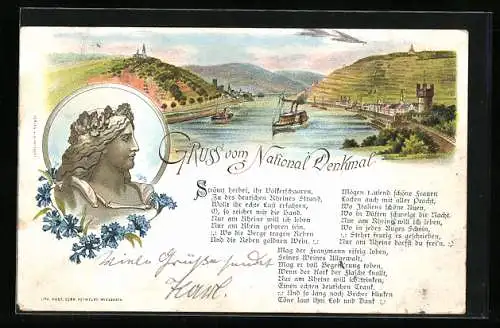 Gruss vom National Denkmal
Strömt herbei, ihr Völkerscharen,
Zu des deutschen Rheines Strand,
Wollt ihr echte Lust erfahren,
O, so reichet mir die Hand.
Nur am Rheine will ich leben
Nur am Rhein geboren sein,
Wo die Berge tragen Reben
Und die Reben goldnen Wein.
Mögen tausend schöne Frauen
Locken auch mit aller Pracht,
Wo Italiens schöne Auen,
Wo in Düften schwelgt die Nacht.
Nur am Rheine will ich leben,
Wo in jedes Auges Schein,
Stehet feurig es geschrieben,
Nur am Rheine darfst du frei'n.
Mag der Franzmann eifrig loben,
Seines Weines Allgewalt,
Mag er voll Begeist'rung toben,
Wenn der Kork der Flasche knallt,
Nur am Rheine will ich trinken,
Einen echten deutschen Trank,
Und so lang noch Becher blinken
Töne laut ihm Lob und Dank
Grüße sendet